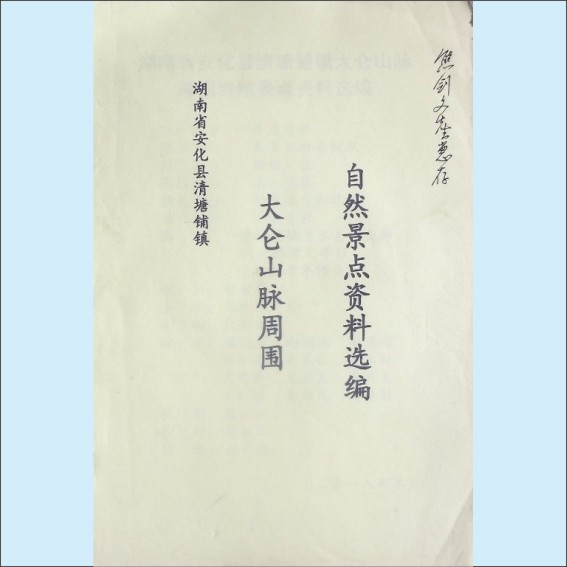 湖南省安化县清塘铺镇
大仑山脉周围
自然景点资料选编
剑文先生惠存